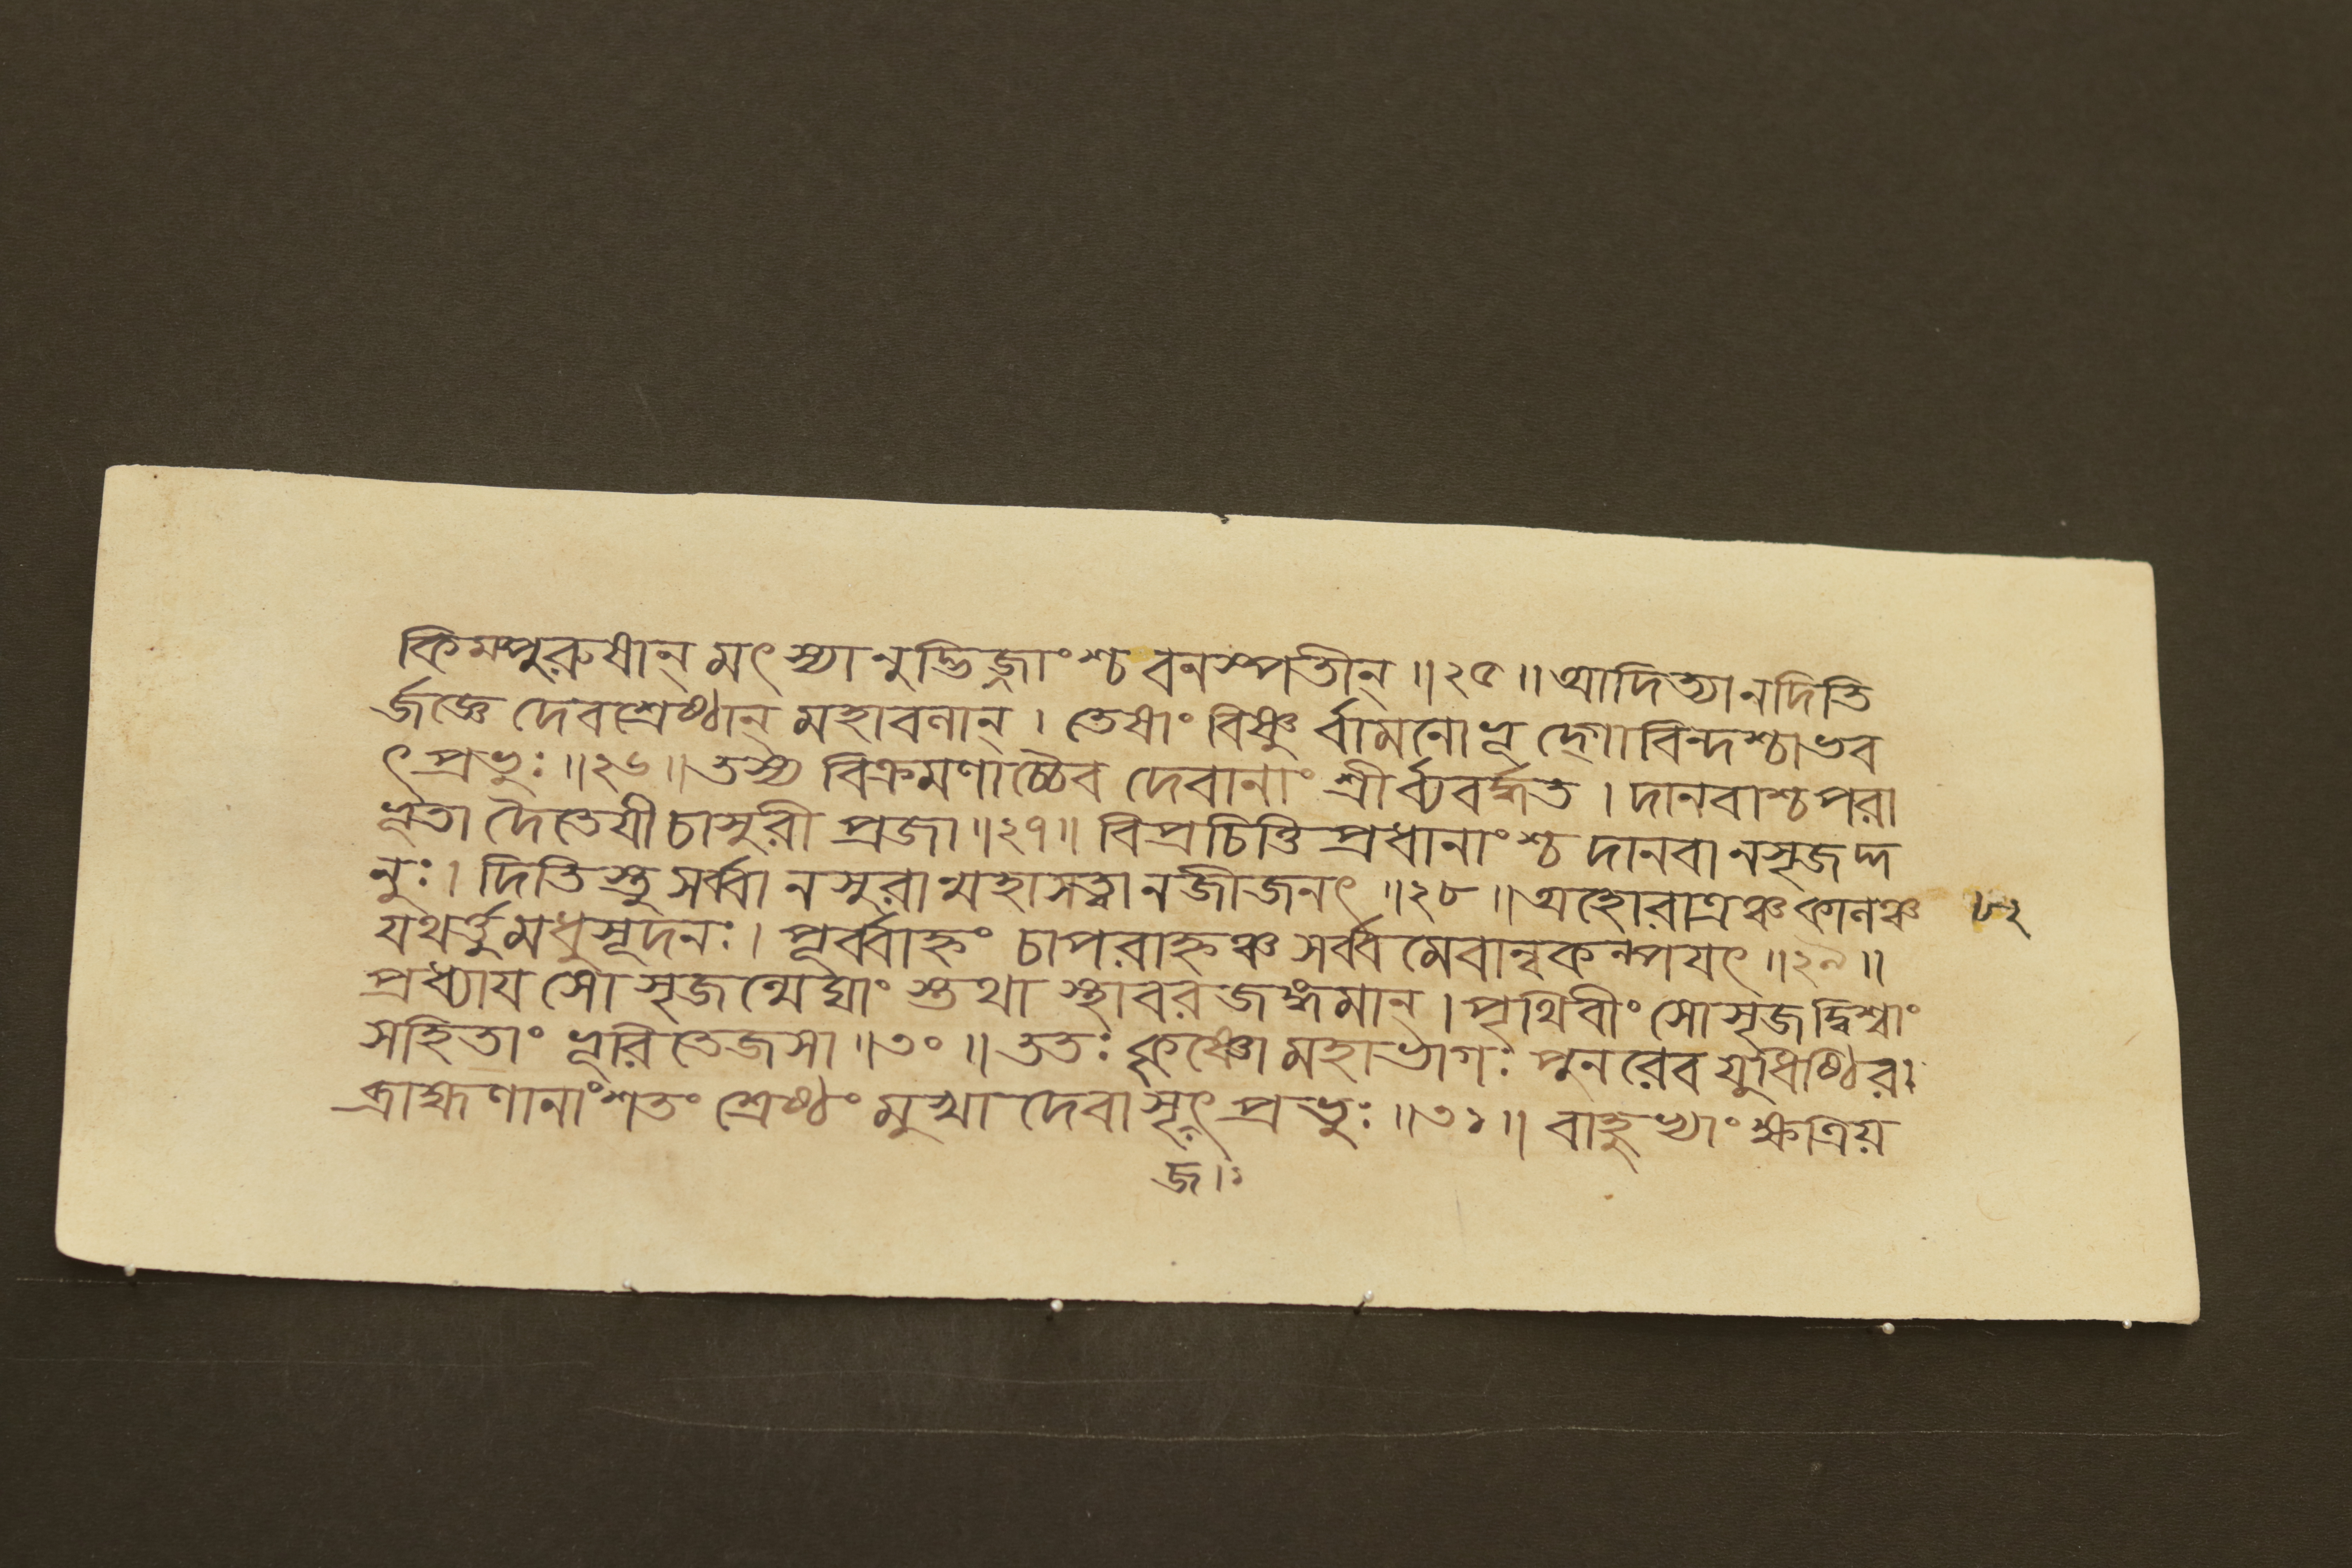 কিমপুরুষান্ মৎস্যানুদ্ভিজ্জাংশ্চ বনস্পতীন্ ॥২৫॥ আদিত্যানদিতি
র্জজ্ঞে দেবশ্রেষ্ঠান্ মহাবলান্ । তেষাং বিষ্ণু র্বামনোভূদ্গোবিন্দশ্চাভব
ৎ প্রভুঃ ॥২৬॥ তস্য বিক্রমণাচ্চৈব দেবানাং শ্রীর্ব্যবর্দ্ধত । দানবাশ্চ পরা
ভূতা দৈতেযী চাসুরী প্রজা ॥২৭॥ বিপ্রচিত্তি প্রধানাংশ্চ দানবানসৃজদ্দ
নুঃ । দিতিস্তু সর্ব্বানসুরান্মহাসত্ত্বানজীজনৎ ॥২৮॥ অহোরাত্রঞ্চ কালঞ্চ ৮২
যথর্ত্তুমধুসূদনঃ । পূর্ব্বাহ্নং চাপরাহ্নঞ্চ সর্ব্বমেবান্বকল্পযৎ ॥২৯॥
প্রধ্যায সোসৃজন্মেঘাং স্তথা স্থাবর জঙ্গমান্ । পৃথিবীং সোসৃজদ্বিশ্বাং
সহিতাং ভূরি তেজসা ॥৩০॥ ততঃ কৃষ্ণো মহাভাগঃ পুনরেব যুধিষ্ঠির ।
ব্রাহ্মণানাং শতং শ্রেষ্ঠং মুখা দেবাসৃৎ প্রভুঃ ॥৩১॥ বাহুভ্যাং ক্ষত্রিয়
জ।ঃ